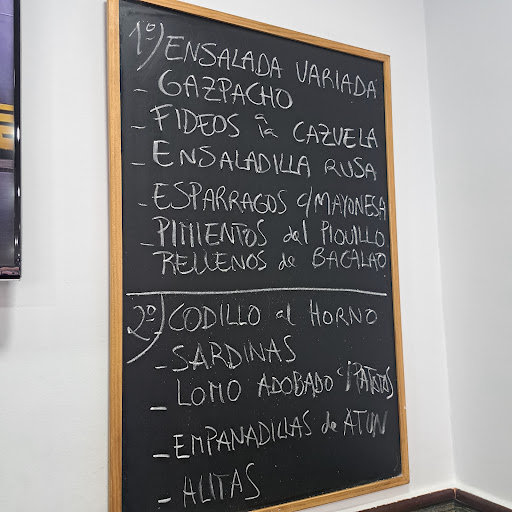 1º) ENSALADA VARIADA
- GAZPACHO
- FIDEOS a la CAZUELA
- ENSALADILLA RUSA
- ESPARRAGOS c/MAYONESA
- PIMIENTOS del PIQUILLO
RELLENOS de BACALAO
2º) CODILLO al HORNO
- SARDINAS
- LOMO ADOBADO c/PATATAS
- EMPANADILLAS de ATUN
- ALITAS